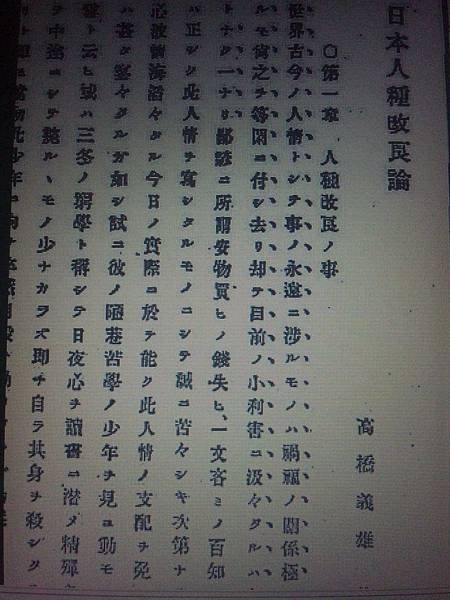 日本人種改良論
高橋義雄
○第一章　人種改良ノ事
世界古今ノ人情トシテ事ノ永遠ニ涉ルモノハ禍福ノ關係極
ルモ尙之ヲ等閑ニ付シ去リ却テ目前ノ小利害ニ汲々タルハ
トナク一ナリ鄙諺ニ所謂安物買ヒノ錢失ヒ、一文吝ミノ百知
ハ正シク此人情ヲ寫シタルモノニシテ誠ニ苦々シキ次第ナ
心波情海滔々タル今日ノ實際ニ於テ能ク此人情ノ支配ヲ免
ハ甚ダ寥々タルガ如シ試ニ彼ノ陋巷苦學ノ少年ヲ見ヨ動モ
ト云ヒ或ハ三冬ノ窮學ト稱シテ日夜心ヲ讀書ニ潛メ精
中途ニシテ斃ルヽモノ少ナカラズ即チ自ラ其身ヲ殺シタ